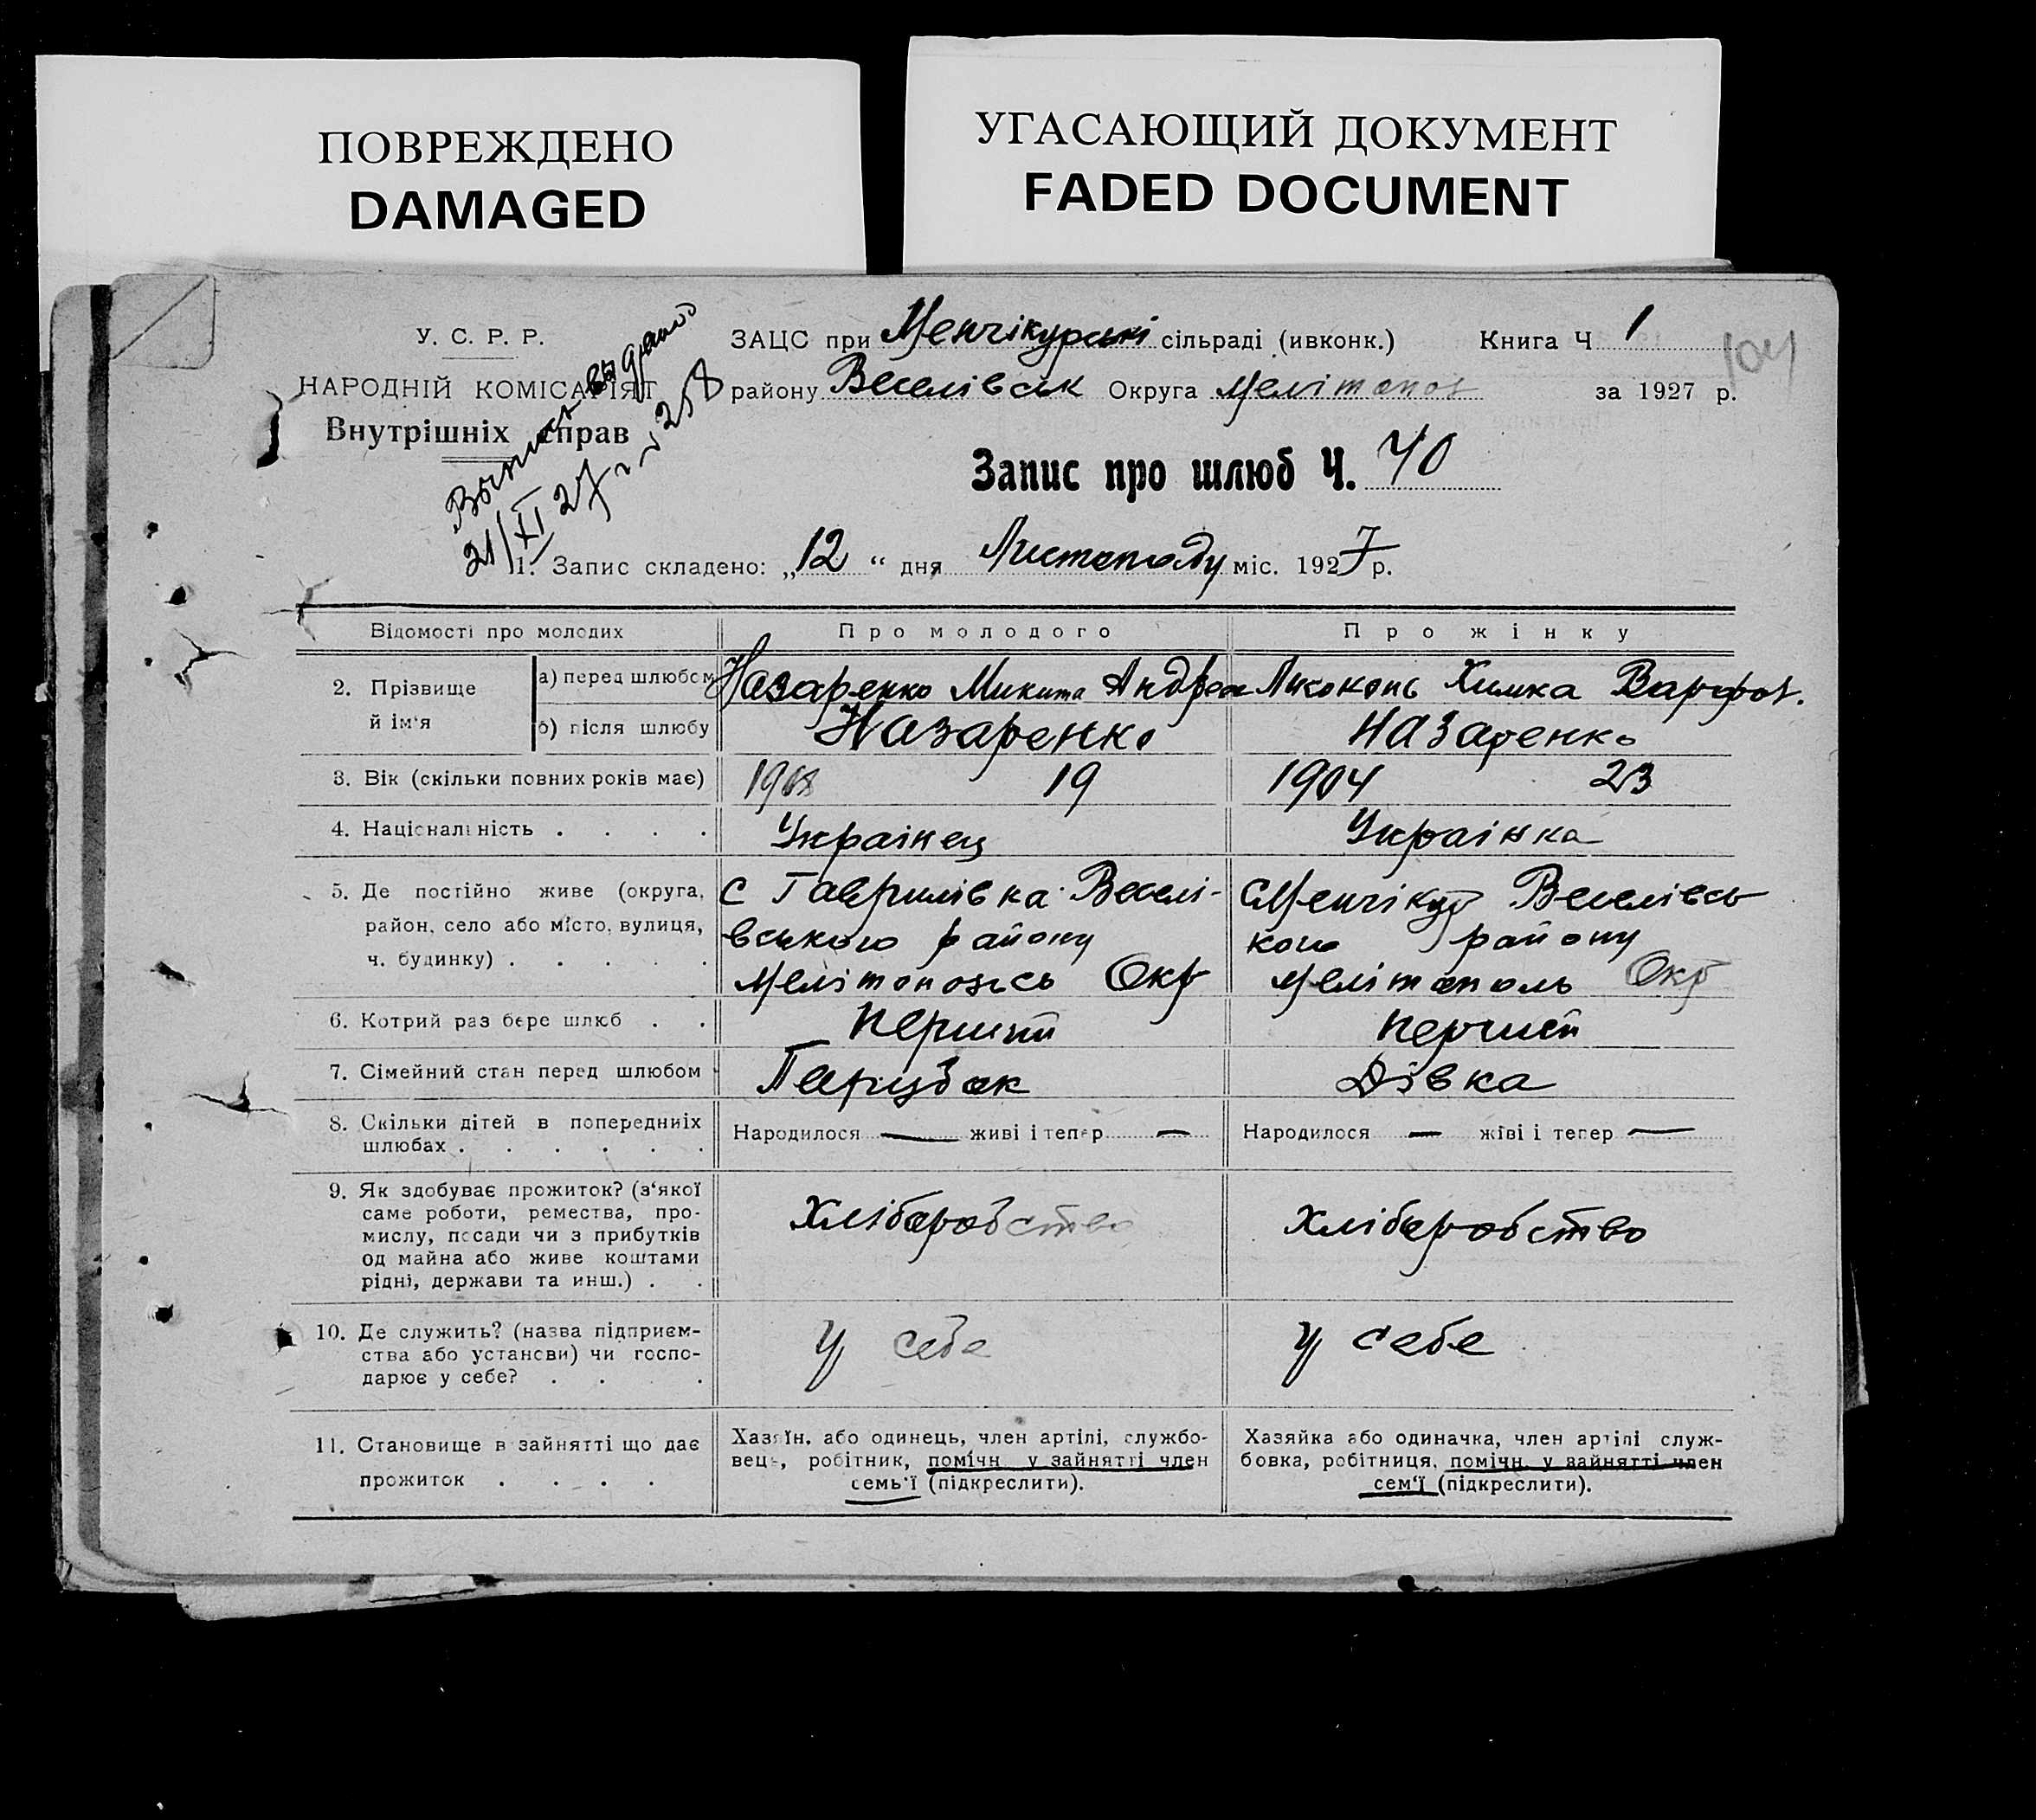 ПОВРЕЖДЕНО
DAMAGED
УГАСАЮЩИЙ ДОКУМЕНТ
FADED DOCUMENT
У. С. Р. Р.
НАРОДНІЙ КОМІСАРІЯТ
Внутрішніх справ
Выпись выдано
21/XI 27 г. 258
ЗАЦС при Менчікурські сільраді (ивконк.) Книга Ч 1
104
району Веселівськ Округа Меліпол за 1927 р.
Запис про шлюб Ч. 40
1. Запис складено: „12“ дня Листопаду міс. 1927 р.
Відомості про молодих
Про молодого
Про жінку
2. Прізвище й ім'я
а) перед шлюбом
Назаренко Микита Андрее
Лисоконь Химка Варфол.
б) після шлюбу
Назаренко
Назаренко
3. Вік (скільки повних років має)
1908 19
1904 23
4. Національність . . . .
Украінец
Украінка
5. Де постійно живе (округа,
район, село або місто, вулиця,
ч. будинку) . . . . .
С Гаврилівка Веселі-
вського району
Мелітопольсь Окр
С Менчікур Веселівсь
кого району
Мелітополь Окр
6. Котрий раз бере шлюб . .
перший
перший
7. Сімейний стан перед шлюбом
Парубок
Дівка
8. Скільки дітей в попередніх
шлюбах . . . . . .
Народилося — живі і тепер —
Народилося — живі і тепер —
9. Як здобуває прожиток? (з'якої
саме роботи, ремества, про-
мислу, посади чи з прибутків
од майна або живе коштами
рідні, держави та инш.) . .
Хліборобство
Хліборобство
10. Де служить? (назва підприєм-
ства або установи) чи госпо-
дарює у себе? . . . .
У себе
У себе
11. Становище в зайнятті що дає
прожиток . . . .
Хазяїн, або одинець, член артілі, службо-
вець, робітник, помічн. у зайнятті член
семь'ї (підкреслити).
Хазяйка або одиначка, член артілі служ-
бовка, робітниця, помічн. у зайнятті член
сем'ї (підкреслити).